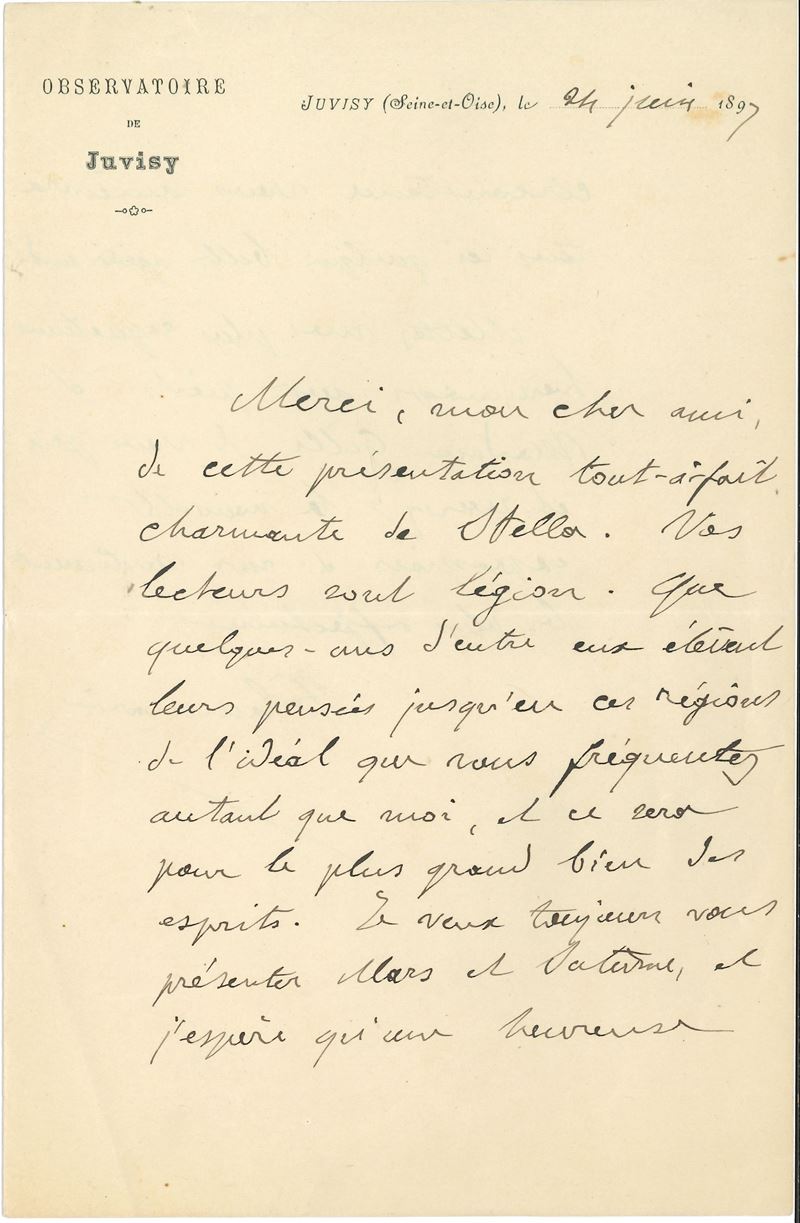 OBSERVATOIRE
DE
Juvisy
JUVISY (Seine-et-Oise), le 24 juin 1897
Merci, mon cher ami,
de cette présentation tout-à-fait
charmante de Stella. Vos
lecteurs sont légion. Que
quelques-uns d'entre eux élèvent
leurs pensées jusqu'en ces régions
de l'idéal que vous fréquentez
autant que moi, et ce sera
pour le plus grand bien des
esprits. Je veux toujours vous
présenter Mars et Saturne, et
j'espère qu'une heureuse